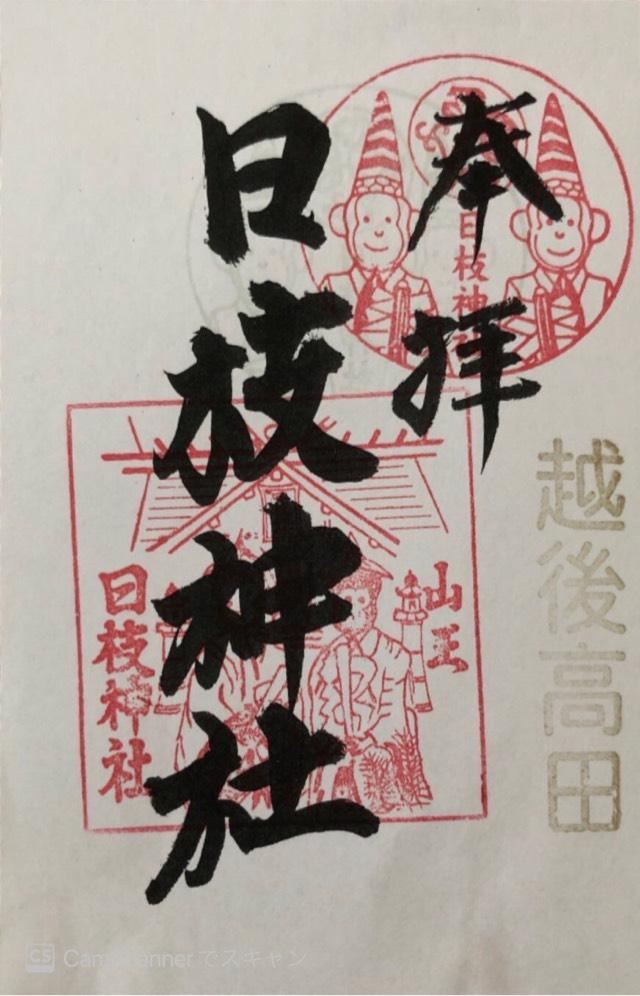 奉拝
日枝神社
日枝神社
越後高田
山王
日枝神社
CS CamScannerでスキャン